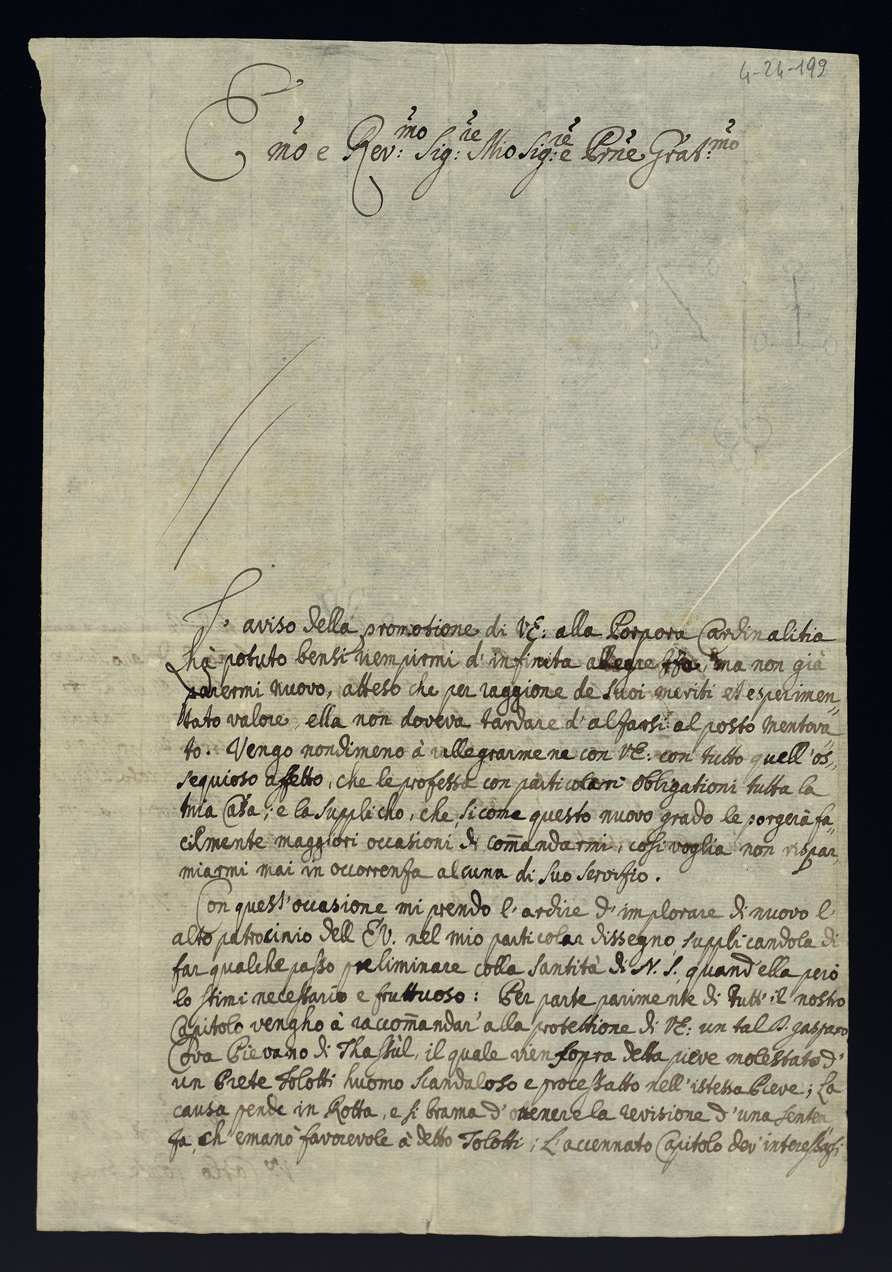 4-24-192
Emo e Rev:mo Sig:re Mio Sig:re e Prne Grat:mo
L'aviso della promotione di VE: alla Porpora Cardinalitia
hà potuto bensi riempirmi d'infinita allegrezza, ma non già
parermi nuovo, atteso che per raggione de suoi meriti et esperimen„
tato valore, ella non doveva tardare d'alzarsi al posto mentova„
to. Vengo nondimeno à rallegrarmene con VE: con tutto quell'os„
sequioso affetto, che le professa con particolari obligationi tutta la
mia Casa; e la supplicho, che, sicome questo nuovo grado le porgerà fa„
cilmente maggiori occasioni di com̃andarmi, così voglia non rispar„
miarmi mai in occorrenza alcuna di suo servizio.
Con quest'occasione mi prendo l'ardire d'implorare di nuovo l'
alto patrocinio dell'EV. nel mio particolar dissegno supplicandola di
far qualche passo preliminare colla Santità di N.S. quand'ella però
lo stimi necessario e fruttuoso: Per parte parimente di tutt'il nostro
Capitolo vengho à raccom̃andar'alla protettione di VE: un tal D. Gasparo
Cova Pievano di Thassùl, il quale vien sopra detta pieve molestato d'
un Prete Tolotti huomo scandaloso e processatto nell'istessa Pieve; La
causa pende in Rotta, e si brama d'ottenere la revisione d'una senten
za, ch'emanò favorevole à detto Tolotti; L'accennato Capitolo dev'interessarsi